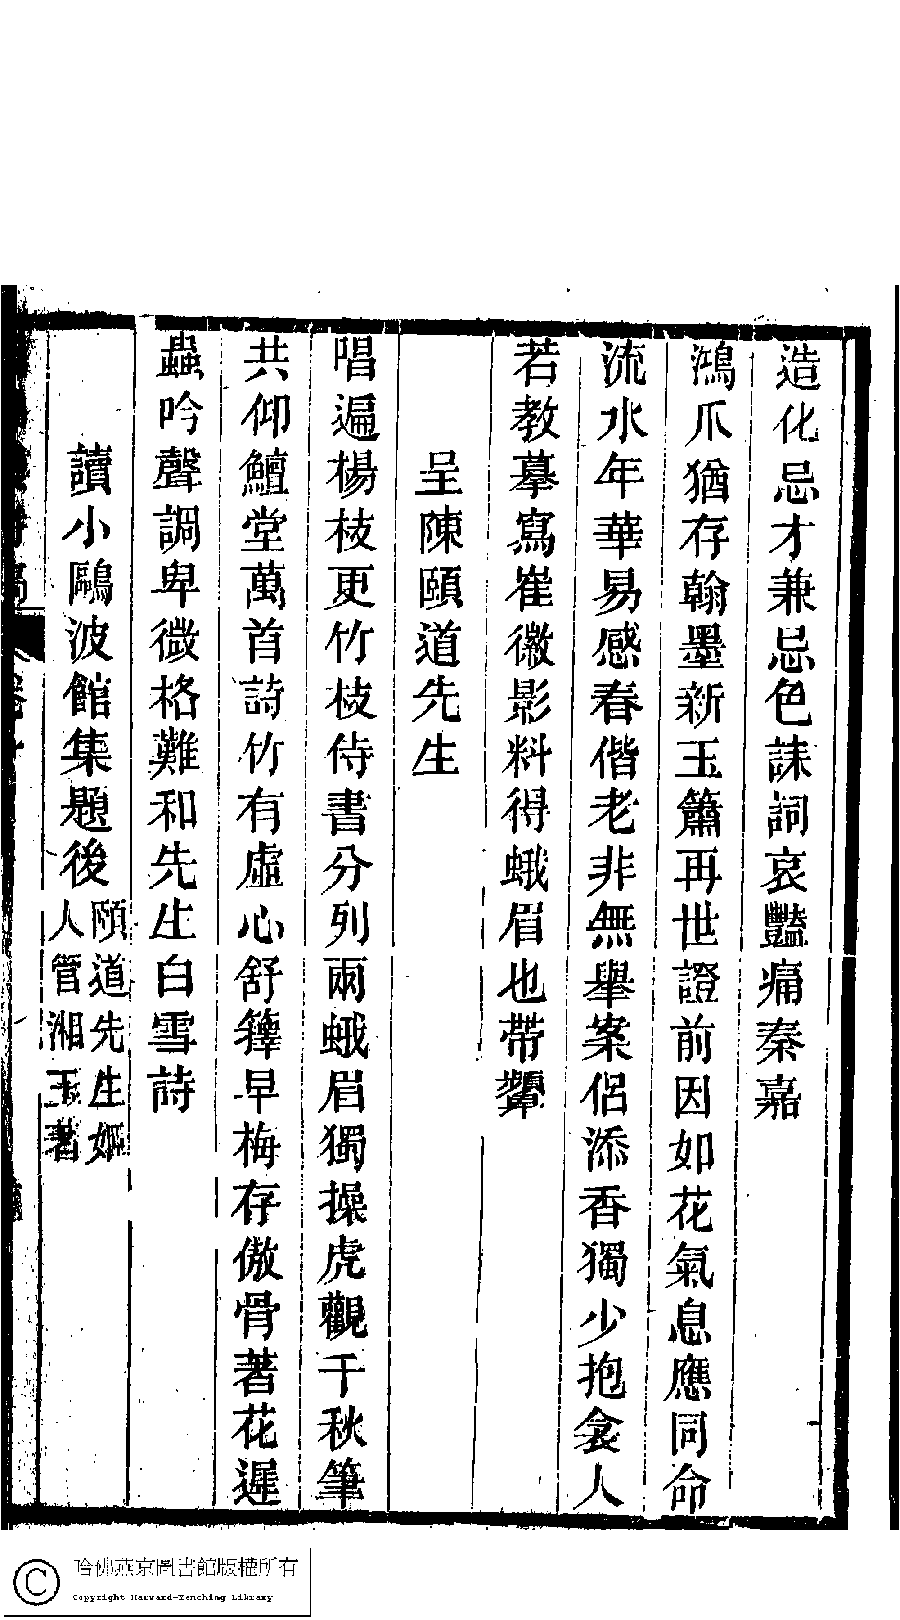 造化忌才兼忌色誄詞哀豔痛秦嘉
鴻爪猶存翰墨新玉簫再世證前因如花氣息應同命
流水年華易感春偕老非無舉案侶添香獨少抱衾人
若教摹寫崔徽影料得蛾眉也帶顰
呈陳頤道先生
唱遍楊枝更竹枝侍書分列兩蛾眉獨操虎觀千秋筆
共仰鱣堂萬首詩竹有虛心舒籜早梅存傲骨著花遲
蟲吟聲調卑微格難和先生白雪詩
讀小鷗波館集題後頤道先生姬人管湘玉著
哈佛燕京圖書館版權所有
Copyright Harvard-Yenching Library